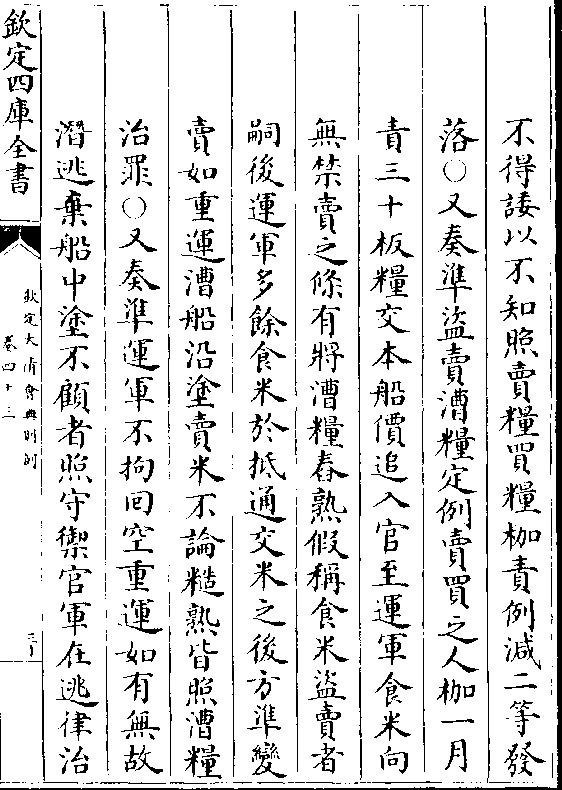 不得諉以不知照賣糧買糧枷責例減二等發
落○又奏準盜賣漕糧定例賣買之人枷一月
責三十板糧交本船價追入官至運軍食米向
無禁賣之條有將漕糧舂熟假稱食米盜賣者
嗣後運軍多餘食米於抵通交米之後方準變
賣如重運漕船沿塗賣米不論糙熟皆照漕糧
治罪○又奏準運軍不拘回空重運如有無故
潛逃棄船中塗不顧者照守禦官軍在逃律治
欽定四庫全書
欽定大清會典則例
卷四十三